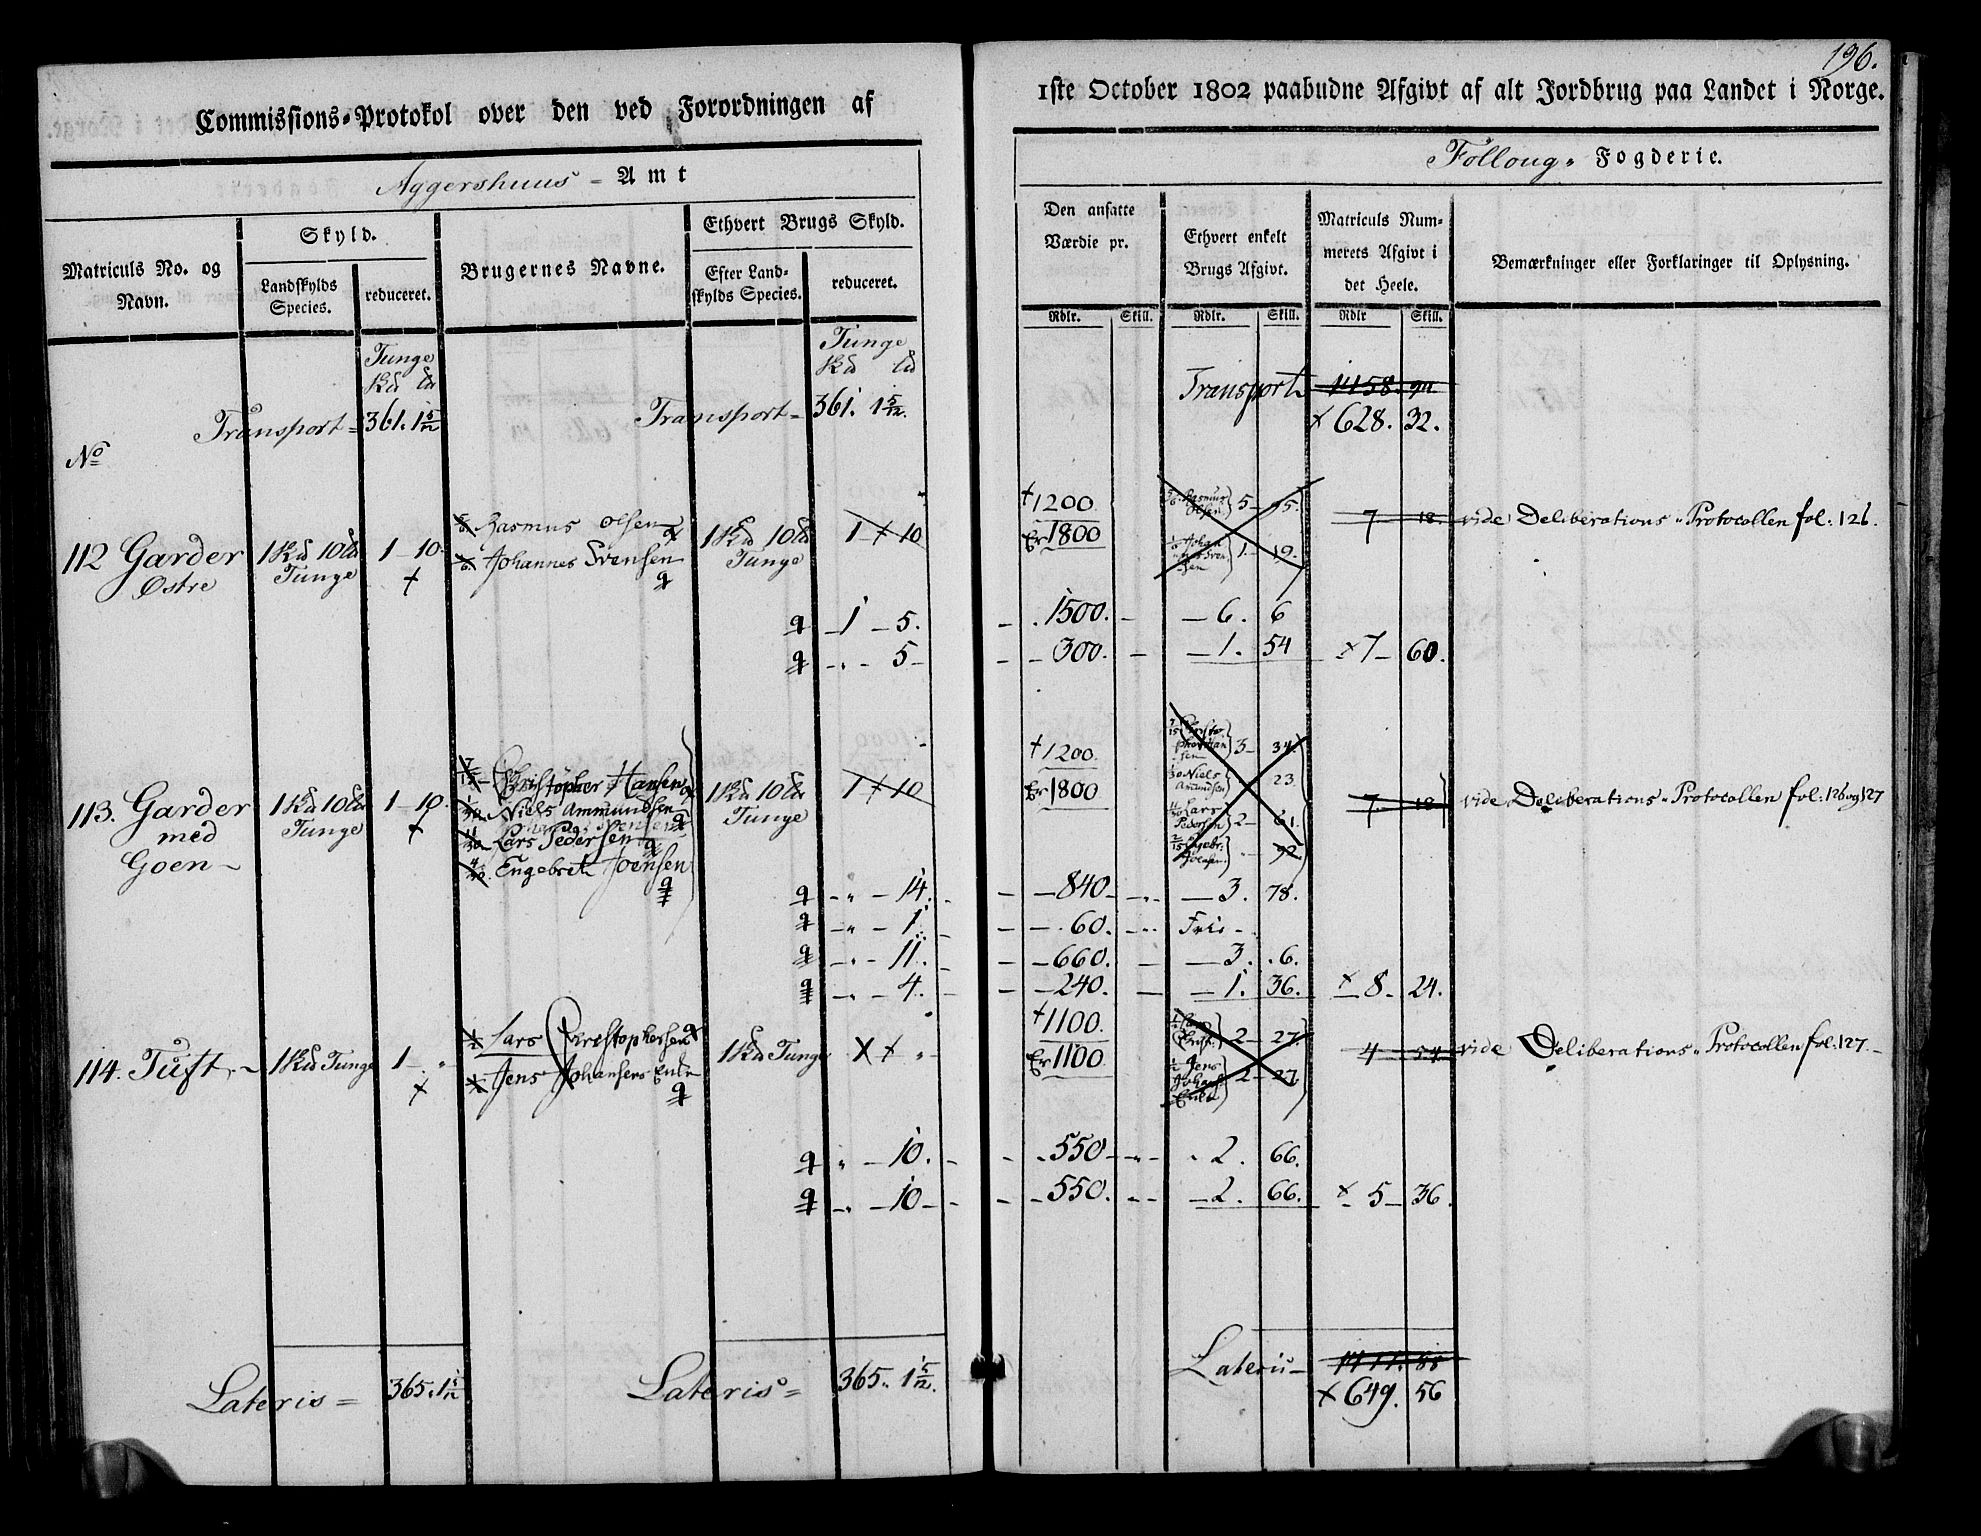 196.
Commissions-Protokol over den ved Forordningen af
Aggershuus - Amt
Matriculs No. og Navn.
Skyld.
Landskylds Species.
reduceret.
Brugernes Navne.
Ethvert Brugs Skyld.
Efter Landskylds Species.
reduceret.
Tunge
Tunge
Transport = 361. 1 5/12
Transport - 361. 1 5/12.
No
112 Garder Østre
1 Kd 10 Ld Tunge
1 - 10.
Rasmus Olsen
Johannes Svensen
1 Kd 10 Ld Tunge
1 - 10
1 - 5.
5 -
113. Garder med Goen -
1 Kd 10 Ld Tunge
1 - 10.
Christopher Hansen
Niels Ammundsen
Lars Pedersen
Engebret Joensen
1 Kd 10 Ld Tunge
1 - 10
- 14.
- 1.
- 11.
- 4.
114. Tuft -
1 Kd Tunge
1 -
Lars Christophersen
Jens Johansens Enke
1 Kd Tunge
- 10.
- 10 -
Lateris = 365. 1 5/12
Lateris = 365. 1 5/12.
1ste October 1802 paabudne Afgivt af alt Jordbrug paa Landet i Norge.
Folloug - Fogderie.
Den ansatte Værdie pr.
Ethvert enkelt Brugs Afgivt.
Matriculs Nummerets Afgivt i det Heele.
Bemærkninger eller Forklaringer til Oplysning.
Rdlr. Skill. Rdlr. Skill. Rdlr Skill.
Transport 1458.
× 628. 32.
† 1200
Er 1800
5/6 Rasmus Olsen 5 - 95.
1/6 Johannes Svensen 1 - 19.
7 - 18.
vide Deliberations-Protocollen fol: 126.
1500. - 6. 6
300. - 1. 54 × 7 - 60.
† 1200
Er 1800
7/15 Christopher Hansen 3 - 34
1/30 Niels Amundsen 23.
11/30 Lars Pedersen 2 - 61.
2/15 Engebr: Joensen 92.
7. 18
vide Deliberations-Protocollen fol: 126 og 127
840 - 3. 78.
60. Frie -
660. - 3. 6.
240. - 1. 36. × 8 - 24.
† 1100.
Er 1100
1/2 Lars Christ: 2 - 27.
1/2 Jens Johans: Enke 2 - 27.
4 - 54.
vide Deliberations-Protocollen fol: 127.
550 - 2. 66.
550. - 2. 66. × 5 - 36.
Lateris - 1477. 88
× 649. 56